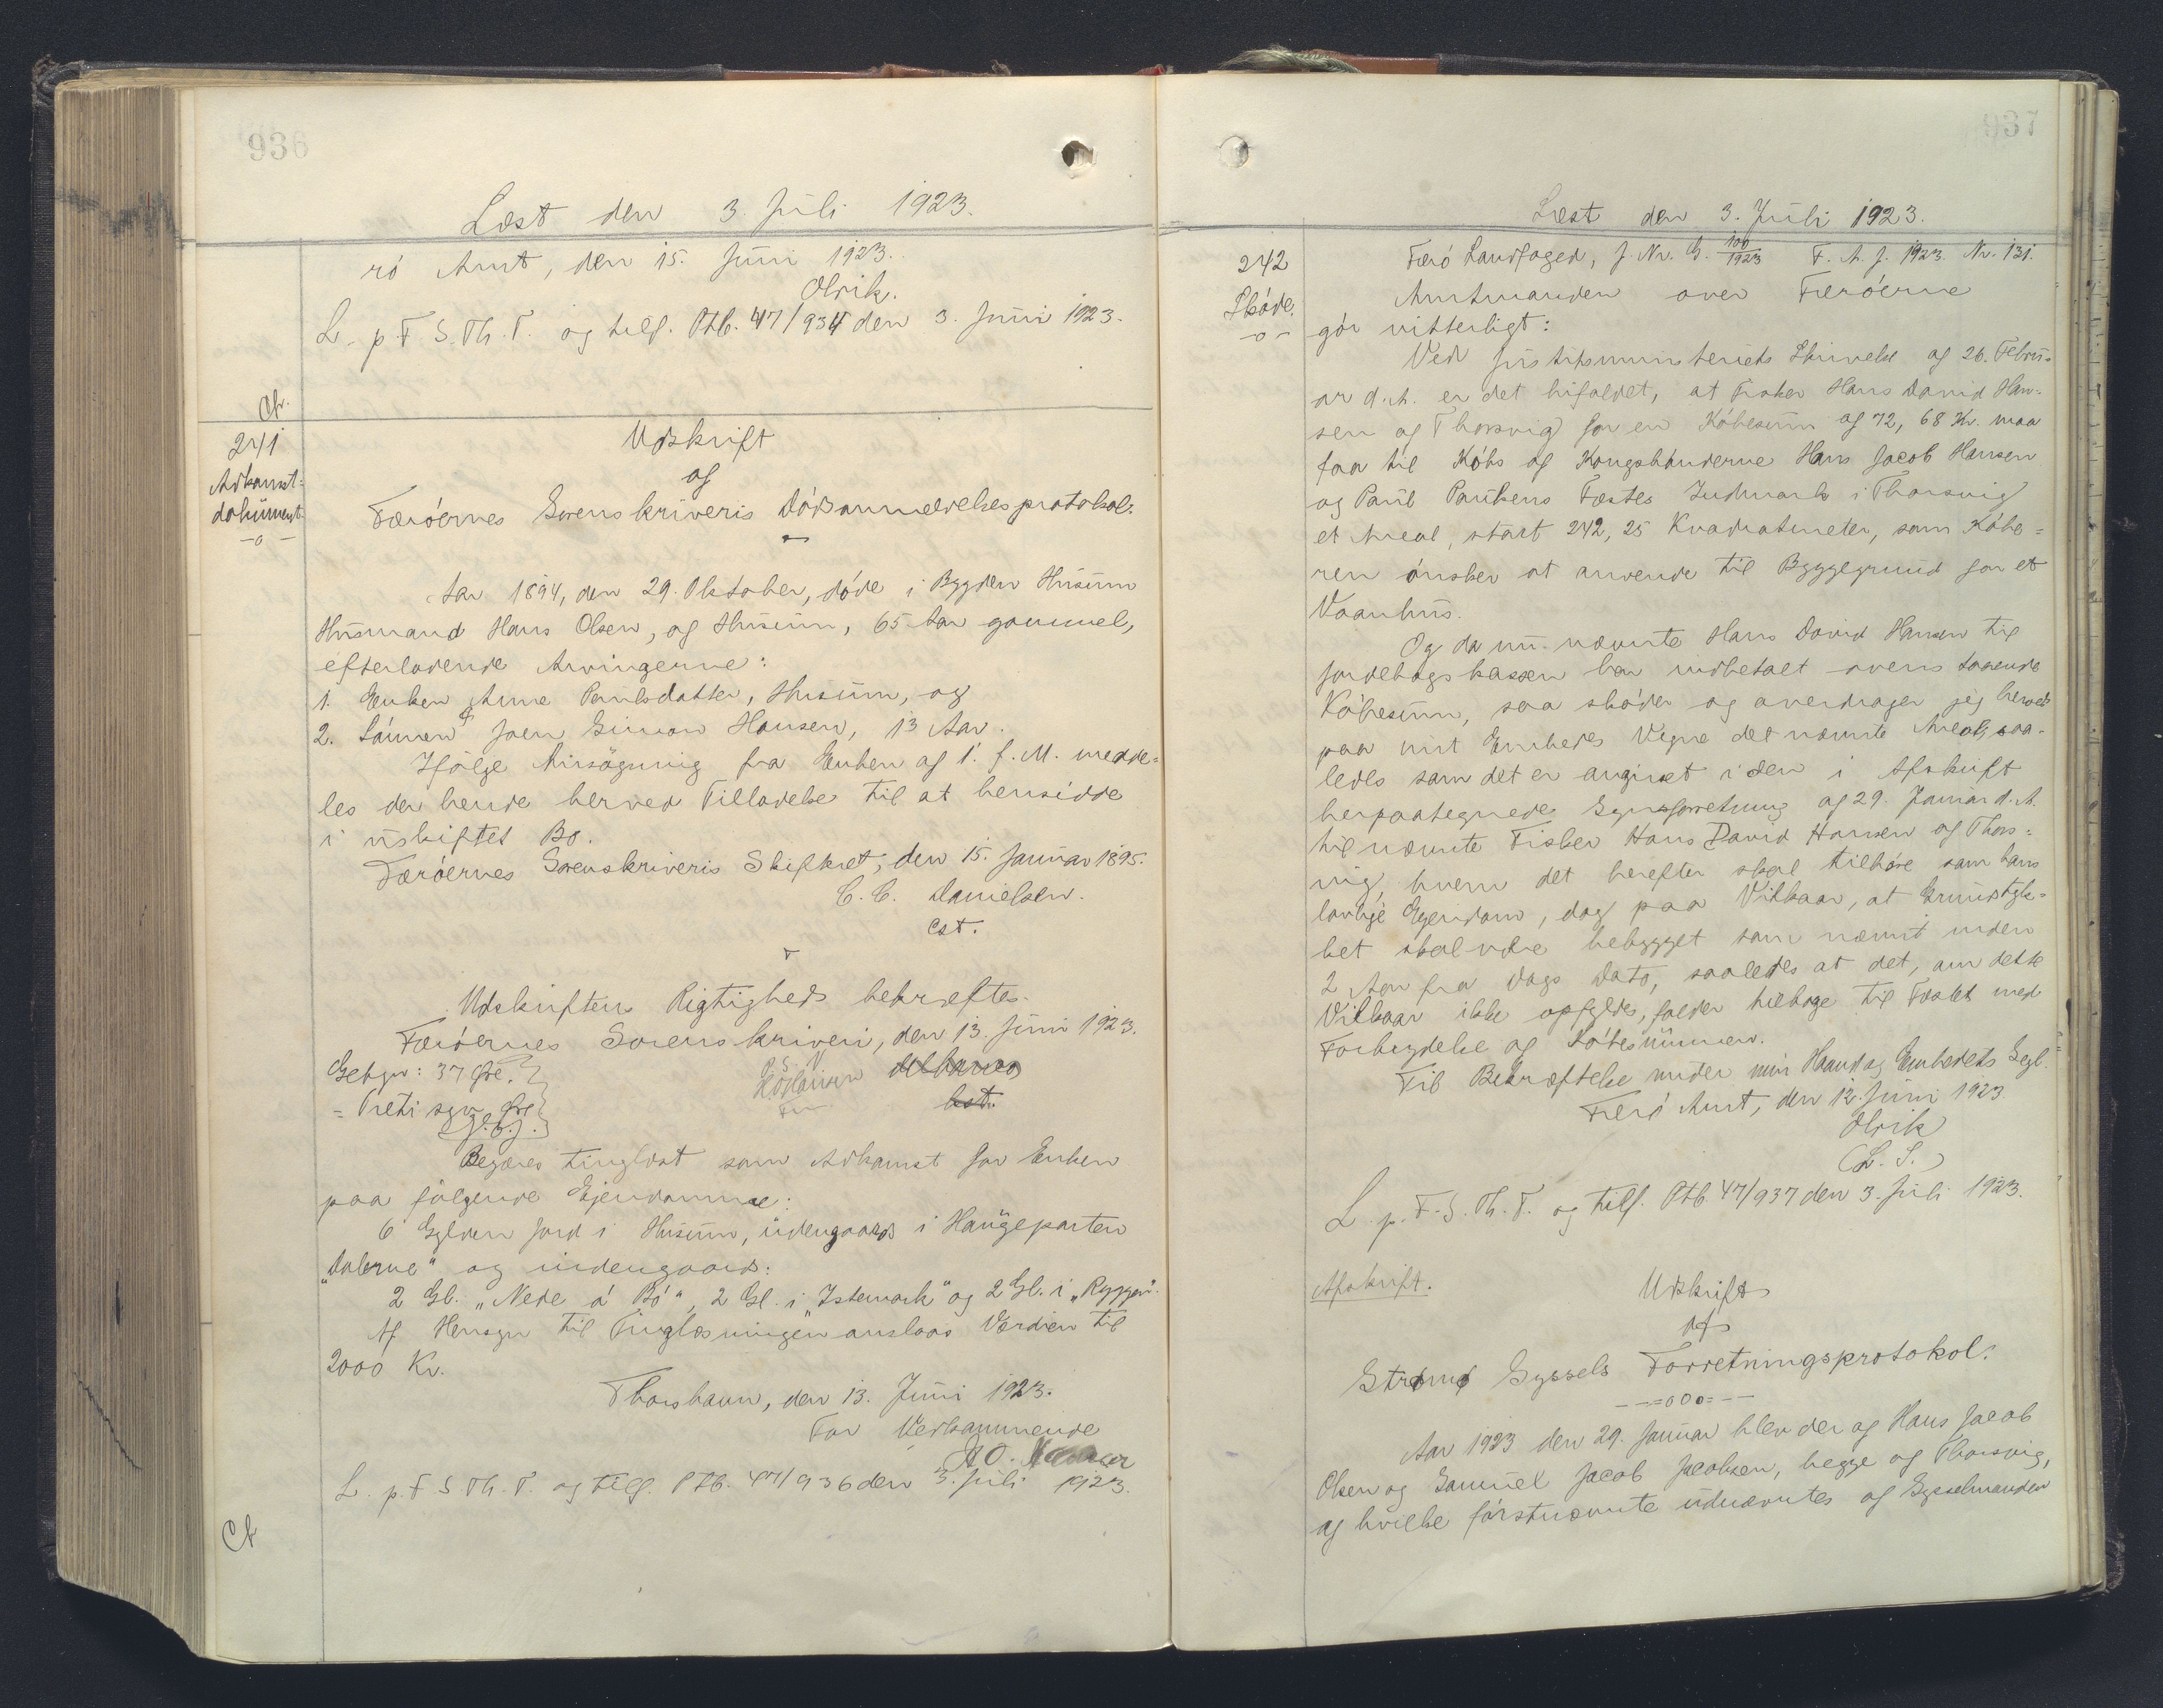 936
Læst den 3. Juli 1923.
rö Amt, den 15. Juni 1923.
Olrik.
L. p. F. S. Th. T. og tilf. Ptb. 47/934 den 3. Juni 1923.
Cfr.
241
Adkomst-
dokument
-o-
Udskrift
af
Færöernes Sorenskriveris Dödsanmeldelsesprotokol.
Aar 1894, den 29. Oktober, döde i Bygden Husum
Husmand Hans Olsen, af Husum, 65 Aar gammel,
efterladende Arvingerne:
1. Enken Anne Paulsdatter, Husum, og
2. Sönnen Joen Simon Hansen, 13 Aar.
Ifölge Ansögning fra Enken af 1. f. M. medde-
les der hende herved Tilladelse til at hensidde
i uskiftet Bo.
Færöernes Sorenskriveris Skifteret, den 15. Januar 1895.
C. C. Danielsen.
cst.
Udskriftens Rigtighed bekræftes.
Færöernes Sorenskriveri, den 13. Juni 1923.
Gebyr: 37 Øre.
= Treti syv Øre
cst.
Begæres tinglæst som Adkomst for Enken
paa fölgende Ejendomme:
6 Gylden Jord i Husum, udengaards i Haugeparten
"Dalerne" og indengaards:
2 Gl. "Nede á Bö", 2 Gl. i "Istemark" og 2 Gl. i "Ryggen".
Af Hensyn til Tinglæsningen anslaas Værdien til
2000 Kr.
Thorshavn, den 13. Juni 1923.
For Vedkommende
L. p. F. S. Th. T. og tilf. Ptb. 47/936 den 3. Juli 1923.
Cfr
937
Læst den 3. Juli 1923.
242
Sköde.
-o-
Færö Landfoged, J. Nr. G. 100/1923 F. A. J. 1923. Nr. 131.
Amtmanden over Færöerne
gör vitterligt:
Ved Justitsministeriets Skrivelse af 26. Febru-
ar d. A. er det bifaldet, at Fisker Hans David Han-
sen af Thorsvig for en Köbesum af 72,68 Kr. maa
faa til Köbs af Kongsbönderne Hans Jacob Hansen
og Paul Paulsens Fæstes Indmark i Thorsvig
et Areal, stort 242,25 Kvadratmeter, som Köbe-
ren önsker at anvende til Byggegrund for et
Vaanhus.
Og da nu nævnte Hans David Hansen til
Jordebogskassen har indbetalt ovenstaaende
Köbesum, saa sköder og overdrager jeg herved
paa mit Embedes Vegne det nævnte Areal, saa-
ledes som det er angivet i den i Afskrift
herpaategnede Synsforretning af 29. Januar d. A.
til nævnte Fisker Hans David Hansen af Thors-
vig, hvem det herefter skal tilhöre som hans
lovlige Ejendom, dog paa Vilkaar, at Grundstyk-
ket skal være bebygget som nævnt inden
2 Aar fra Dags Dato, saaledes at det, om dette
Vilkaar ikke opfyldes, falder tilbage til Fæstet med
Forbrydelse af Köbesummen.
Til Bekræftelse under min Haand og Embedets Segl.
Færö Amt, den 12. Juni 1923.
Olrik
(L. S.)
L. p. F. S. Th. T. og tilf. Ptb 47/937 den 3. Juli 1923.
Afskrift.
Udskrift
af
Strømø Syssels Forretningsprotokol.
---=oOo=---
Aar 1923 den 29. Januar blev der af Hans Jacob
Olsen og Samuel Jacob Jacobsen, begge af Thorsvig,
af hvilke förstnævnte udnævntes af Sysselmanden